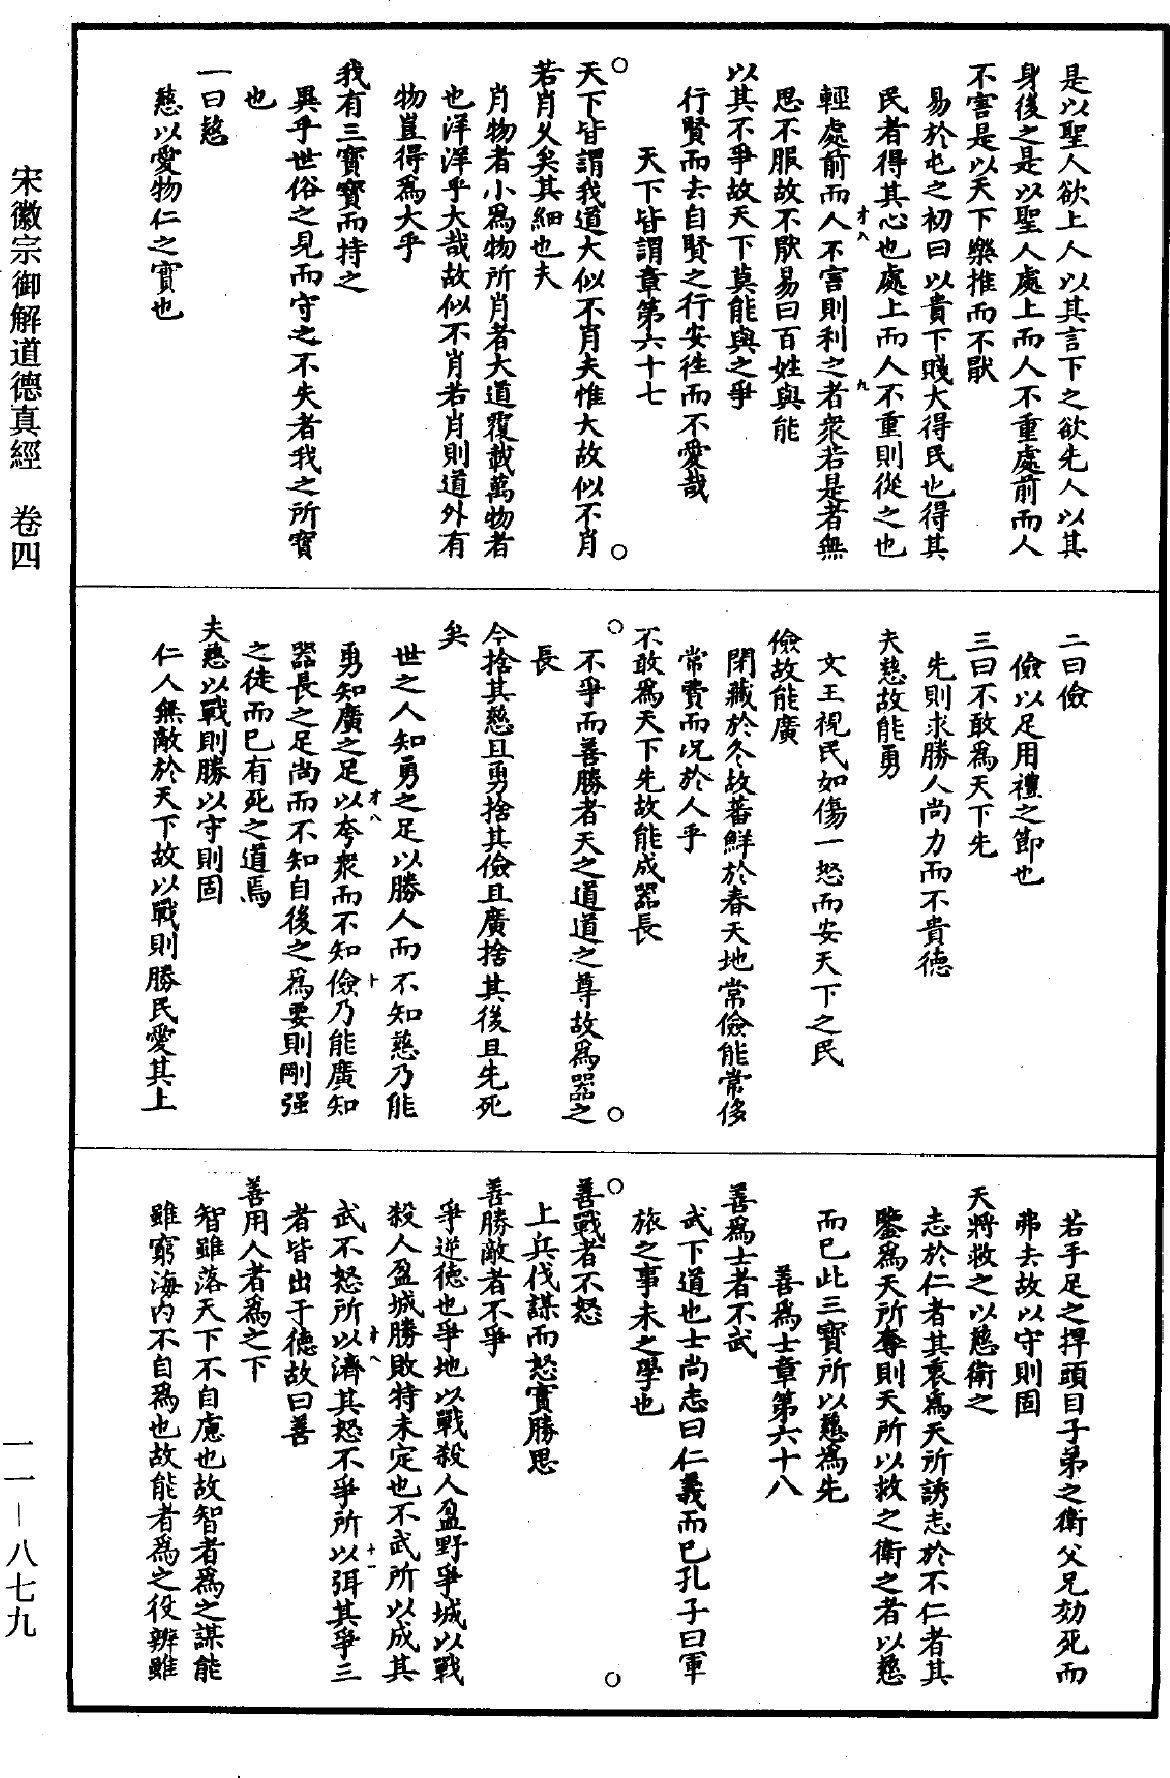 是以聖人欲上人以其言下之欲先人以其
身後之是以聖人處上而人不重處前而人
不害是以天下樂推而不猒
易於屯之初曰以貴下賤大得民也得其
民者得其心也處上而人不重則從之也
輕處前而人不害則利之者衆若是者無
思不服故不猒易曰百姓與能
以其不爭故天下莫能與之爭
行賢而去自賢之行安往而不愛哉
天下皆謂章第六十七
天下皆謂我道大似不肖夫惟大故似不肖
若肖久矣其細也夫
肖物者小爲物所肖者大道覆載萬物者
也洋洋乎大哉故似不肖若肖則道外有
物豈得爲大乎
我有三寶寶而持之
異乎世俗之見而守之不失者我之所寶
也
一曰慈
慈以愛物仁之實也
二曰儉
儉以足用禮之節也
三曰不敢爲天下先
先則求勝人尚力而不貴德
夫慈故能勇
文王視民如傷一怒而安天下之民
儉故能廣
閉藏於冬故蕃鮮於春天地常儉能常侈
常費而況於人乎
不敢爲天下先故能成器長
不爭而善勝者天之道道之尊故爲器之
長
今捨其慈且勇捨其儉且廣捨其後且先死
矣
世之人知勇之足以勝人而不知慈乃能
勇知廣之足以夸衆而不知儉乃能廣知
器長之足尚而不知自後之爲要則剛强
之徒而已有死之道焉
夫慈以戰則勝以守則固
仁人無敵於天下故以戰則勝民愛其上
若手足之捍頭目子弟之衛父兄効死而
弗去故以守則固
天將救之以慈衛之
志於仁者其衷爲天所誘志於不仁者其
鑒爲天所奪則天所以救之衛之者以慈
而已此三寶所以慈爲先
善爲士章第六十八
善爲士者不武
武下道也士尚志曰仁義而已孔子曰軍
旅之事未之學也
善戰者不怒
上兵伐謀而怒實勝思
善勝敵者不爭
爭逆德也爭地以戰殺人盈野爭城以戰
殺人盈城勝敗特未定也不武所以成其
武不怒所以濟其怒不爭所以弭其爭三
者皆出于德故曰善
善用人者爲之下
智雖落天下不自慮也故智者爲之謀能
雖窮海內不自爲也故能者爲之役辨雖
宋徽宗御解道德真經　卷四
一一－八七九